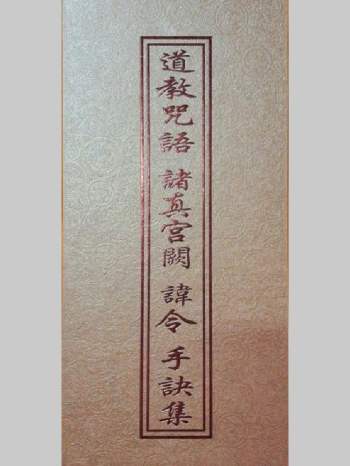 道教咒語 諸真宮闕 諱令 手訣集